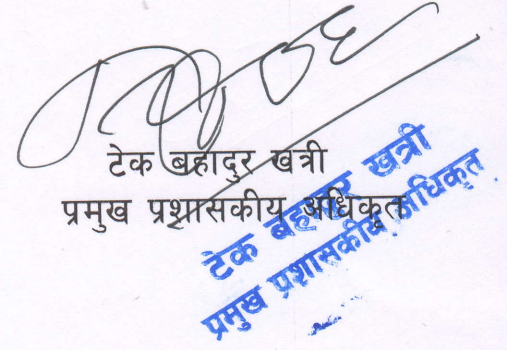 टेक बहादुर खत्री
प्रमुख प्रशासकीय अधिकृत
टेक बहादुर खत्री
प्रमुख प्रशासकीय अधिकृत